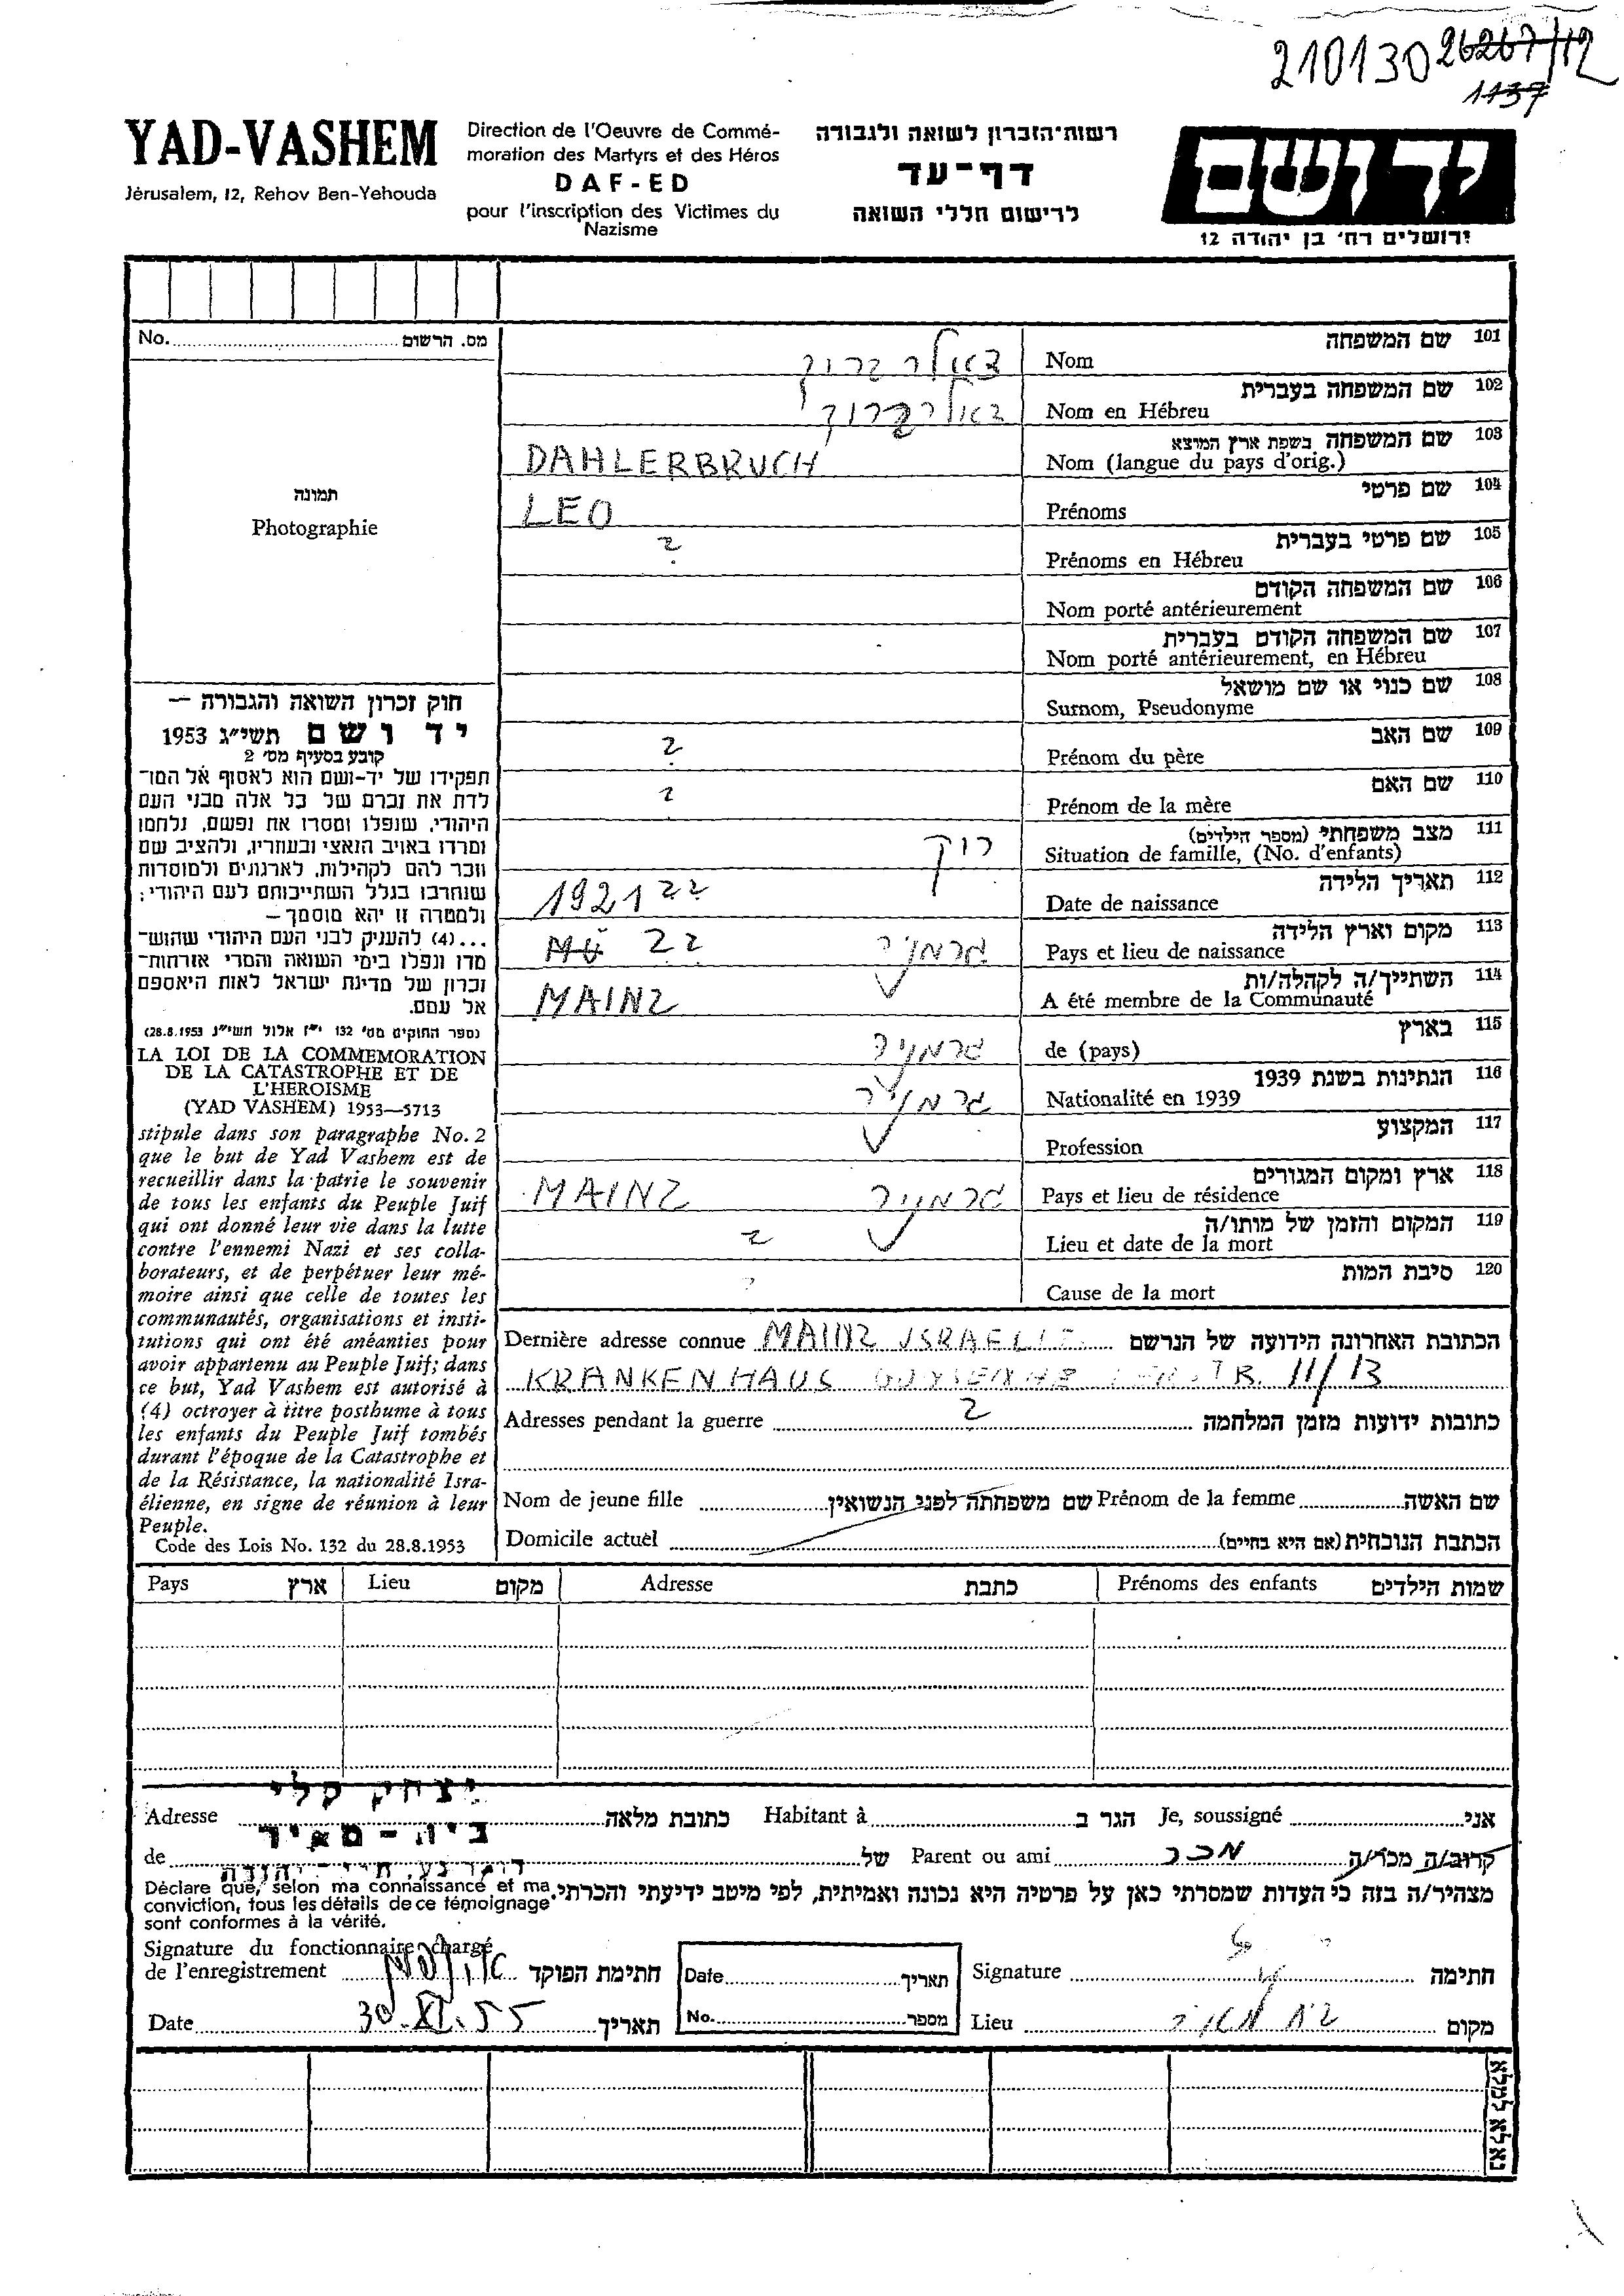 210130 26267/12
1137
YAD-VASHEM
Jérusalem, 12, Rehov Ben-Yehouda
Direction de l'Oeuvre de Commé-
moration des Martyrs et des Héros
DAF-ED
pour l'inscription des Victimes du
Nazisme
רשות-הזכרון לשואה ולגבורה
דף-עד
לרישום חללי השואה
יד ושם
ירושלים רח' בן יהודה 12
No. מס. הרשום
תמונה
Photographie
חוק זכרון השואה והגבורה –
יד ושם תשי"ג 1953
קובע בסעיף מס' 2
תפקידו של יד-ושם הוא לאסוף אל המו-
לדת את זכרם של כל אלה מבני העם
היהודי, שנפלו ומסרו את נפשם, נלחמו
ומרדו באויב הנאצי ובעוזריו, ולהציב שם
וזכר להם לקהילות, לארגונים ולמוסדות
שנחרבו בגלל השתייכותם לעם היהודי;
ולמטרה זו יהא מוסמך–
...(4) להעניק לבני העם היהודי שהוש-
מדו ונפלו בימי השואה והמרי אזרחות-
זכרון של מדינת ישראל לאות היאספם
אל עמם.
(ספר החוקים מס' 132 י"ז אלול תשי"ג 28.8.1953)
LA LOI DE LA COMMEMORATION
DE LA CATASTROPHE ET DE
L'HEROISME
(YAD VASHEM) 1953—5713
stipule dans son paragraphe No. 2
que le but de Yad Vashem est de
recueillir dans la patrie le souvenir
de tous les enfants du Peuple Juif
qui ont donné leur vie dans la lutte
contre l'ennemi Nazi et ses colla-
borateurs, et de perpétuer leur mé-
moire ainsi que celle de toutes les
communautés, organisations et insti-
tutions qui ont été anéanties pour
avoir appartenu au Peuple Juif; dans
ce but, Yad Vashem est autorisé à
(4) octroyer à titre posthume à tous
les enfants du Peuple Juif tombés
durant l'époque de la Catastrophe et
de la Résistance, la nationalité Isra-
élienne, en signe de réunion à leur
Peuple.
Code des Lois No. 132 du 28.8.1953
101 שם המשפחה
Nom דאלרברוך
102 שם המשפחה בעברית
Nom en Hébreu דאלרברוך
103 שם המשפחה בשפת ארץ המוצא
Nom (langue du pays d'orig.) DAHLERBRUCH
104 שם פרטי
Prénoms LEO
105 שם פרטי בעברית
Prénoms en Hébreu ?
106 שם המשפחה הקודם
Nom porté antérieurement
107 שם המשפחה הקודם בעברית
Nom porté antérieurement, en Hébreu
108 שם כנוי או שם מושאל
Surnom, Pseudonyme
109 שם האב
Prénom du père ?
110 שם האם
Prénom de la mère ?
111 מצב משפחתי (מספר הילדים)
Situation de famille, (No. d'enfants) רוק
112 תאריך הלידה
Date de naissance 1921 ??
113 מקום וארץ הלידה
Pays et lieu de naissance גרמניה ??
114 השתייך/ה לקהלה/ות
A été membre de la Communauté MAINZ
115 בארץ
de (pays) גרמניה
116 הנתינות בשנת 1939
Nationalité en 1939 גרמניה
117 המקצוע
Profession
118 ארץ ומקום המגורים
Pays et lieu de résidence גרמניה MAINZ
119 המקום והזמן של מותו/ה
Lieu et date de la mort ?
120 סיבת המות
Cause de la mort ?
Dernière adresse connue MAINZ ISRAELIT. הכתובת האחרונה הידועה של הנרשם
KRANKENHAUS 11/13
Adresses pendant la guerre ? כתובות ידועות מזמן המלחמה
Nom de jeune fille שם משפחתה לפני הנשואין Prénom de la femme שם האשה
Domicile actuel הכתבת הנוכחית (אם היא בחיים)
Pays ארץ Lieu מקום Adresse כתבת Prénoms des enfants שמות הילדים
יצחק קלי
Adresse כתובת מלאה Habitant à הגר ב Je, soussigné אני
בית-מאיר
de של Parent ou ami מכר קרוב/ה מכר/ה
דואר נע, הרי-יהודה
Déclare que, selon ma connaissance et ma
conviction, tous les détails de ce témoignage
sont conformes à la vérité.
מצהיר/ה בזה כי העדות שמסרתי כאן על פרטיה היא נכונה ואמיתית, לפי מיטב ידיעתי והכרתי.
Signature du fonctionnaire chargé
de l'enregistrement חתימת הפוקד
Date תאריך
Signature חתימה
Date 30.XI.55 תאריך
No. מספר
Lieu בית מאיר מקום
נא לא למלא